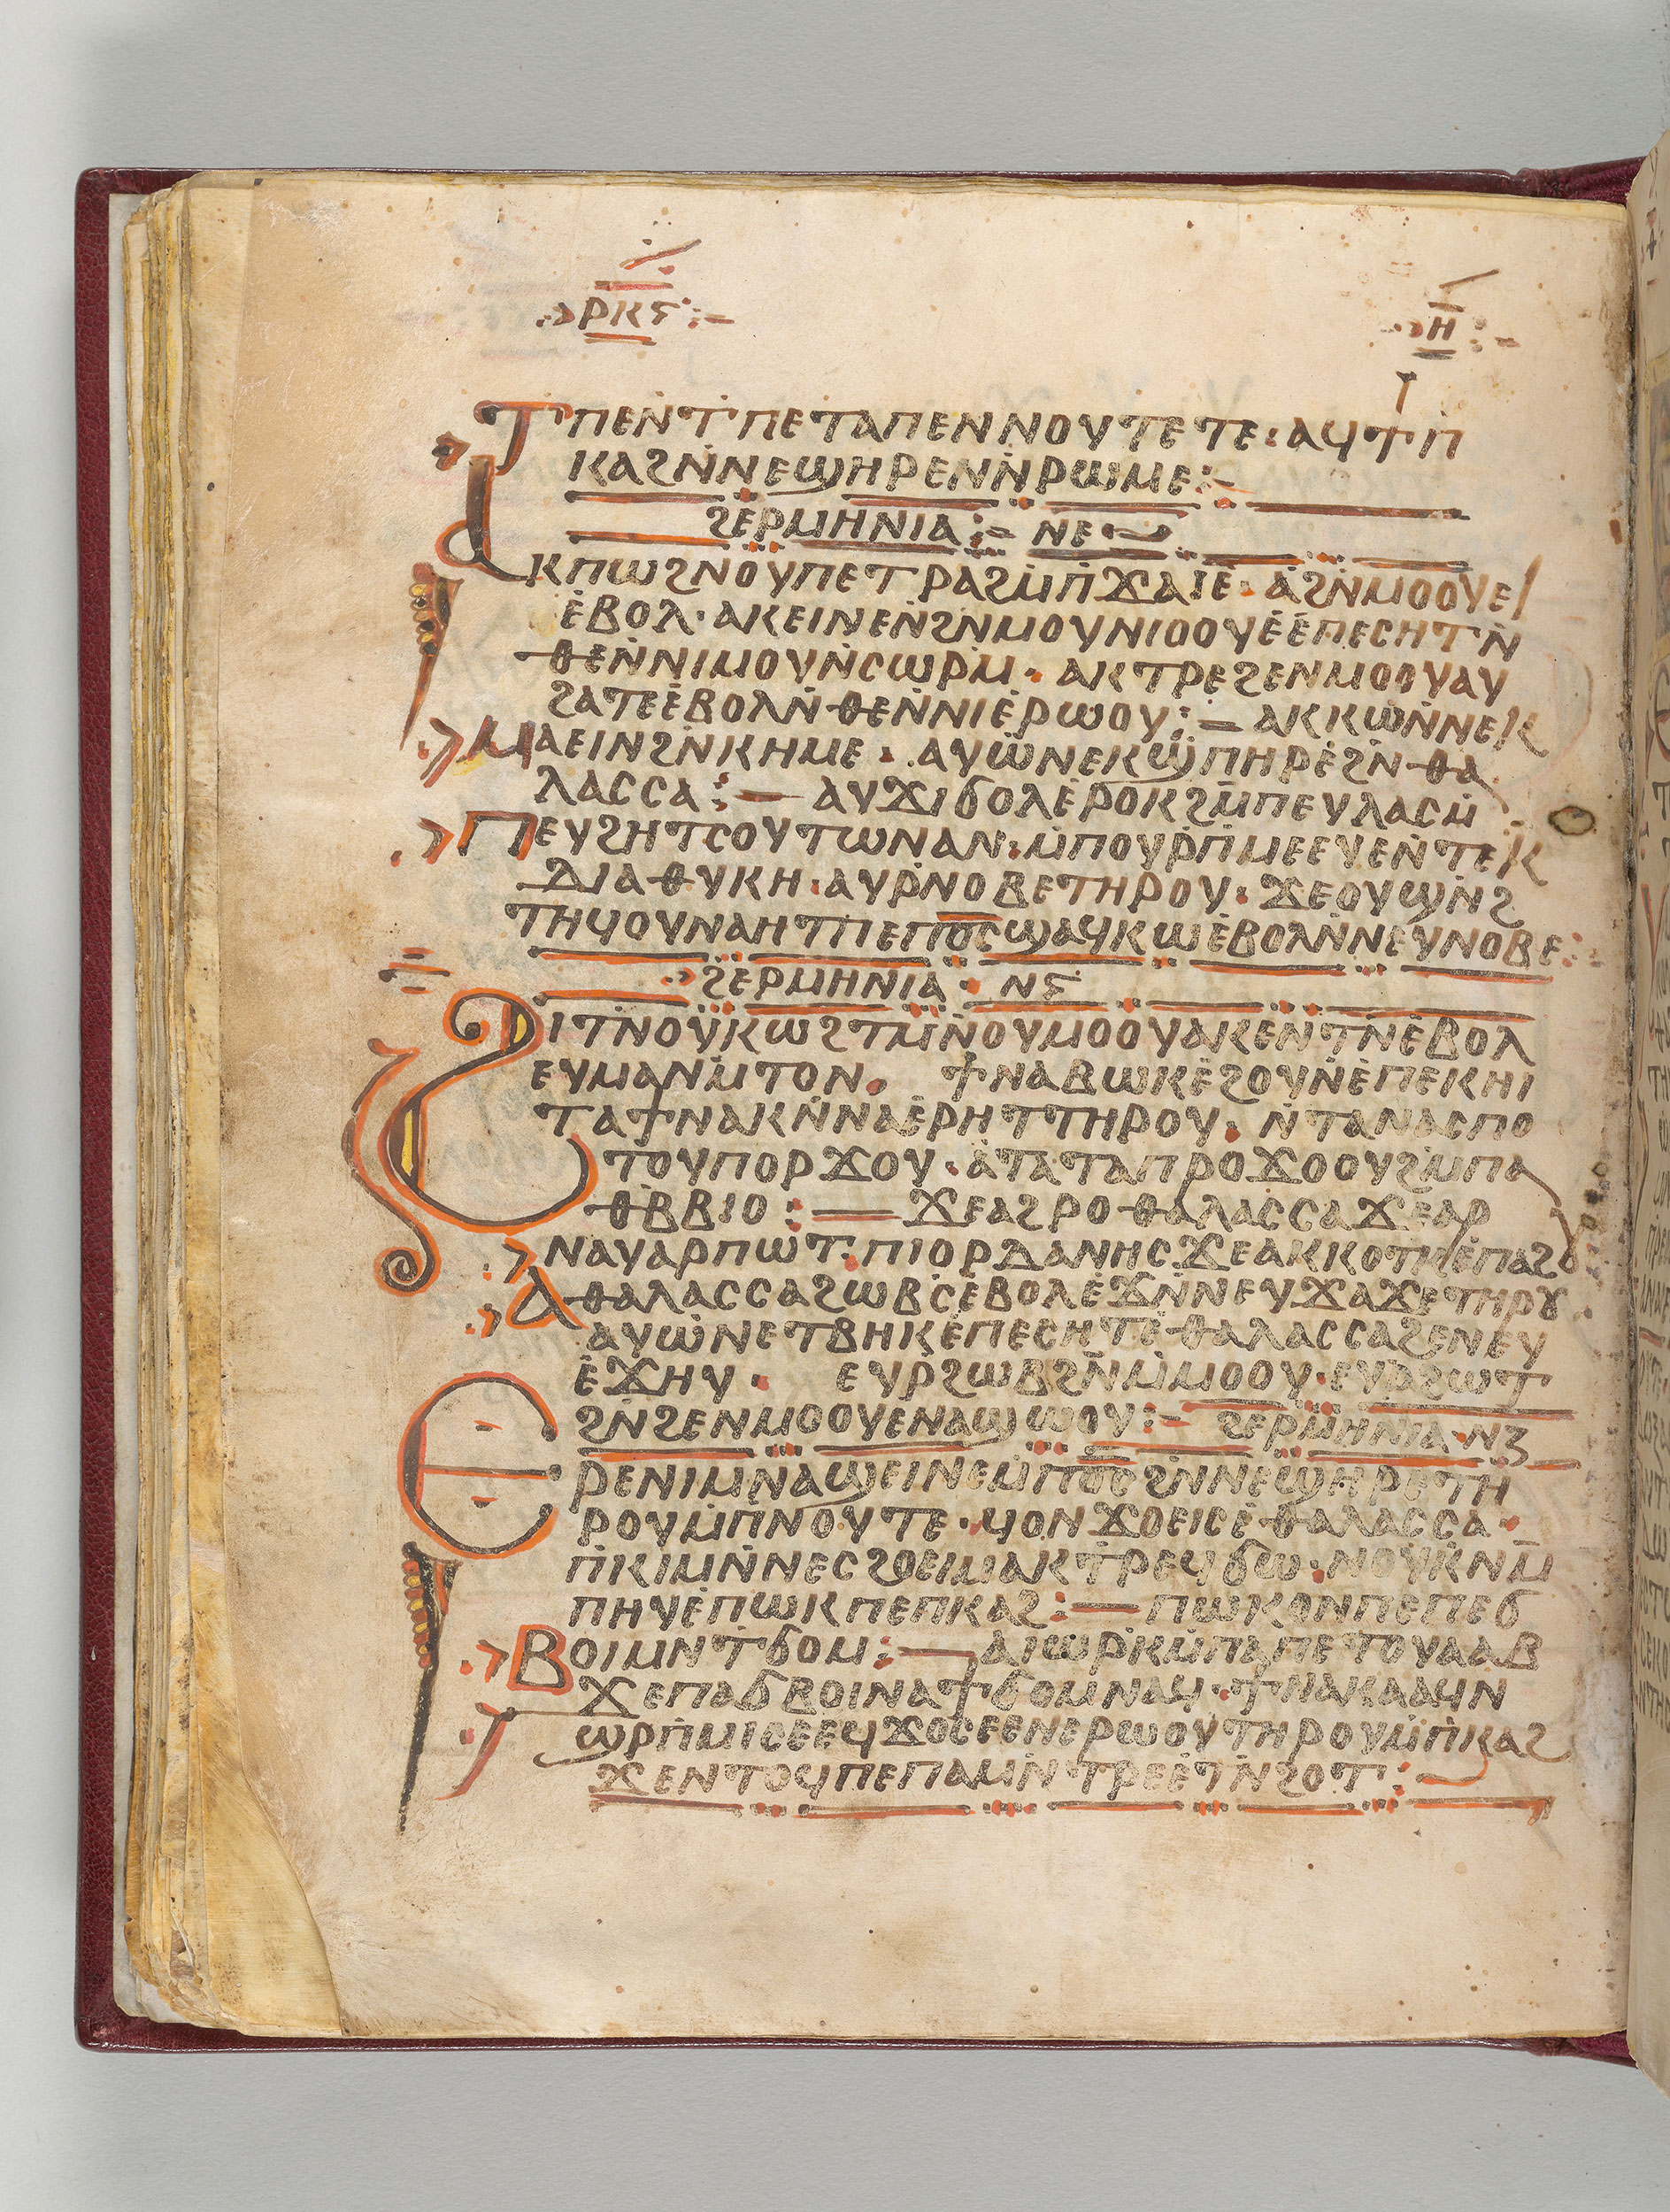 ⲣⲕⲋ ⲏ
ⲧⲡⲉⲛⲧⲡⲉⲧⲁⲡⲉⲛⲛⲟⲩⲧⲉⲧⲉ· ⲁϥϯⲡ
ⲕⲁϩⲛ̀ⲛⲉϣⲏⲣⲉⲛ̀ⲛ̀ⲣⲱⲙⲉ:-
ϩⲉⲣⲙⲏⲛⲓⲁ:- ⲛⲉ
ⲁⲕⲡⲱϩⲛⲟⲩⲡⲉⲧⲣⲁϩⲙ̀ⲡ̀ϫⲁⲓⲉ· ⲁ̀ϩⲛ̀ⲙⲟⲟⲩⲉⲓ
ⲉ̀ⲃⲟⲗ· ⲁⲕⲉⲓⲛⲉⲛ̀ϩⲛ̀ⲙⲟⲩⲛⲓⲟⲟⲩⲉ̀ⲉ̀ⲡⲉⲥⲏⲧⲛ̀
ⲑⲉⲛ̀ⲛⲓⲙⲟⲩⲛ̀ⲥⲱⲣⲙ̀· ⲁⲕⲧⲣⲉϩⲉⲛⲙⲟⲟⲩⲁⲩ
ϩⲁⲧⲉⲉ̀ⲃⲟⲗⲛ̀ⲑⲉⲛ̀ⲛⲓⲉ̀ⲣⲱⲟⲩ:— ⲁⲕⲕⲱⲛ̀ⲛⲉⲕ
ⲙⲁⲉⲓⲛϩⲛ̀ⲕⲏⲙⲉ· ⲁⲩⲱ̀ⲛⲉⲕϣ̀ⲡⲏⲣⲉ̀ϩⲛ̀ⲑⲁ
ⲗⲁⲥⲥⲁ:— ⲁⲩϫⲓϭⲟⲗⲉ̀ⲣⲟⲕϩⲙ̀ⲡⲉⲩⲗⲁⲥⲙ̀
ⲡⲉⲩϩⲏⲧⲥⲟⲩⲧⲱⲛⲁⲛ· ⲙ̀ⲡⲟⲩⲣ̀ⲡ̀ⲙⲉⲉⲩⲉⲛ̀ⲧⲉⲕ
ⲇⲓⲁⲑⲩⲕⲏ· ⲁⲩⲣ̀ⲛⲟⲃⲉⲧⲏⲣⲟⲩ· ϫⲉⲟⲩϣⲛ̀ϩ
ⲧⲏϥⲟⲩⲛⲁⲏⲧⲡⲉⲡⲟ̅ⲥ̅ϣⲁϥⲕⲱⲉ̀ⲃⲟⲗⲛ̀ⲛⲉⲩⲛⲟⲃⲉ:-
ϩⲉⲣⲙⲏⲛⲓⲁ· ⲛⲋ
ϩⲓⲧⲛⲟⲩⲕⲱϩⲧⲙⲛ̀ⲟⲩⲙⲟⲟⲩⲁⲕⲉⲛⲧⲛ̀ⲉ̀ⲃⲟⲗ
ⲉⲩⲙⲁⲛ̀ⲙ̀ⲧⲟⲛ· ϯⲛⲁⲃⲱⲕⲉ̀ϩⲟⲩⲛⲉ̀ⲡⲉⲕⲏⲓ
ⲧⲁϯⲛⲁⲕⲛ̀ⲛⲁⲉ̀ⲣⲏⲧⲧⲏⲣⲟⲩ· ⲛ̀ⲧⲁⲛⲁⲥⲡⲟ
ⲧⲟⲩⲡⲟⲣϫⲟⲩ· ⲁ̀ⲧⲁⲧⲁⲡⲣⲟϫⲟⲟⲩϩⲙ̀ⲡⲁ
ⲑⲃ̀ⲃⲓⲟ:— ϫⲉⲁϩⲣⲟⲑⲁⲗⲁⲥⲥⲁϫⲉⲁⲣ
ⲛⲁⲩⲁⲣⲡⲱⲧ· ⲡⲓⲟⲣⲇⲁⲛⲏⲥϫⲉⲁⲕⲕⲟⲧⲕⲉ̀ⲡⲁϩⲟⲩ
ⲁⲑⲁⲗⲁⲥⲥⲁϩⲱⲃⲥ̀ⲉ̀ⲃⲟⲗⲉ̀ϫⲛ̀ⲛⲉⲩϫⲁϫⲉⲧⲏⲣⲟⲩ
ⲁⲩⲱ̀ⲛⲉⲧⲃⲏⲕⲉ̀ⲡⲉⲥⲏⲧⲉ̀ⲑⲁⲗⲁⲥⲥⲁϩⲉⲛⲉⲩ
ⲉ̀ϫⲏⲩ· ⲉⲩⲣϩⲱⲃϩⲛ̀ⲙ̀ⲙⲟⲟⲩ· ⲉⲩⲣϩⲱⲧ
ϩⲛ̀ϩⲉⲛⲙⲟⲟⲩⲉⲛⲁϣⲱⲟⲩ:- ϩⲉⲣⲙⲏⲛⲓⲁ· ⲛⲍ
ⲉⲣⲉⲛⲓⲙⲛⲁϣⲉⲓⲛⲉⲙ̀ⲡⲟ̅ⲥ̅ϩⲛ̀ⲛⲉϣⲏⲣⲉⲧⲏ
ⲣⲟⲩⲙ̀ⲡ̀ⲛⲟⲩⲧⲉ· ϥⲟⲛϫⲟⲉⲓⲥⲉ̀ⲑⲁⲗⲁⲥⲥⲁ·
ⲡ̀ⲕⲓⲙⲛ̀ⲛⲉⲥϩⲟⲉⲓⲙⲁⲕⲧⲣⲉϥϭⲱ· ⲛⲟⲩⲕⲛ̀ⲙ
ⲡⲏⲩⲉ̀ⲡⲱⲕⲡⲉⲡⲕⲁϩ:— ⲡⲱⲕⲟⲛⲡⲉⲡⲉϭ
ⲃⲟⲓⲙⲛⲧϭⲟⲙ:— ⲁⲓⲱⲣ̀ⲕⲙ̀ⲡⲁⲡⲉⲧⲟⲩⲁⲁⲃ
ϫⲉⲡⲁϭⲃⲟⲓⲛⲁϯϭⲟⲙⲛⲁϥ· ϯⲛⲁⲕⲁⲁϥⲛ
ϣⲣⲡ̀ⲙⲓⲥⲉⲉϥϫⲟⲥⲉⲉⲛⲉⲣⲱⲟⲩⲧⲏⲣⲟⲩⲙ̀ⲡ̀ⲕⲁϩ
ϫⲉⲛⲧⲟϥⲡⲉⲡⲁⲙⲛ̀ⲧⲣⲉⲉ̀ⲧⲛ̀ϩⲟⲧ:-